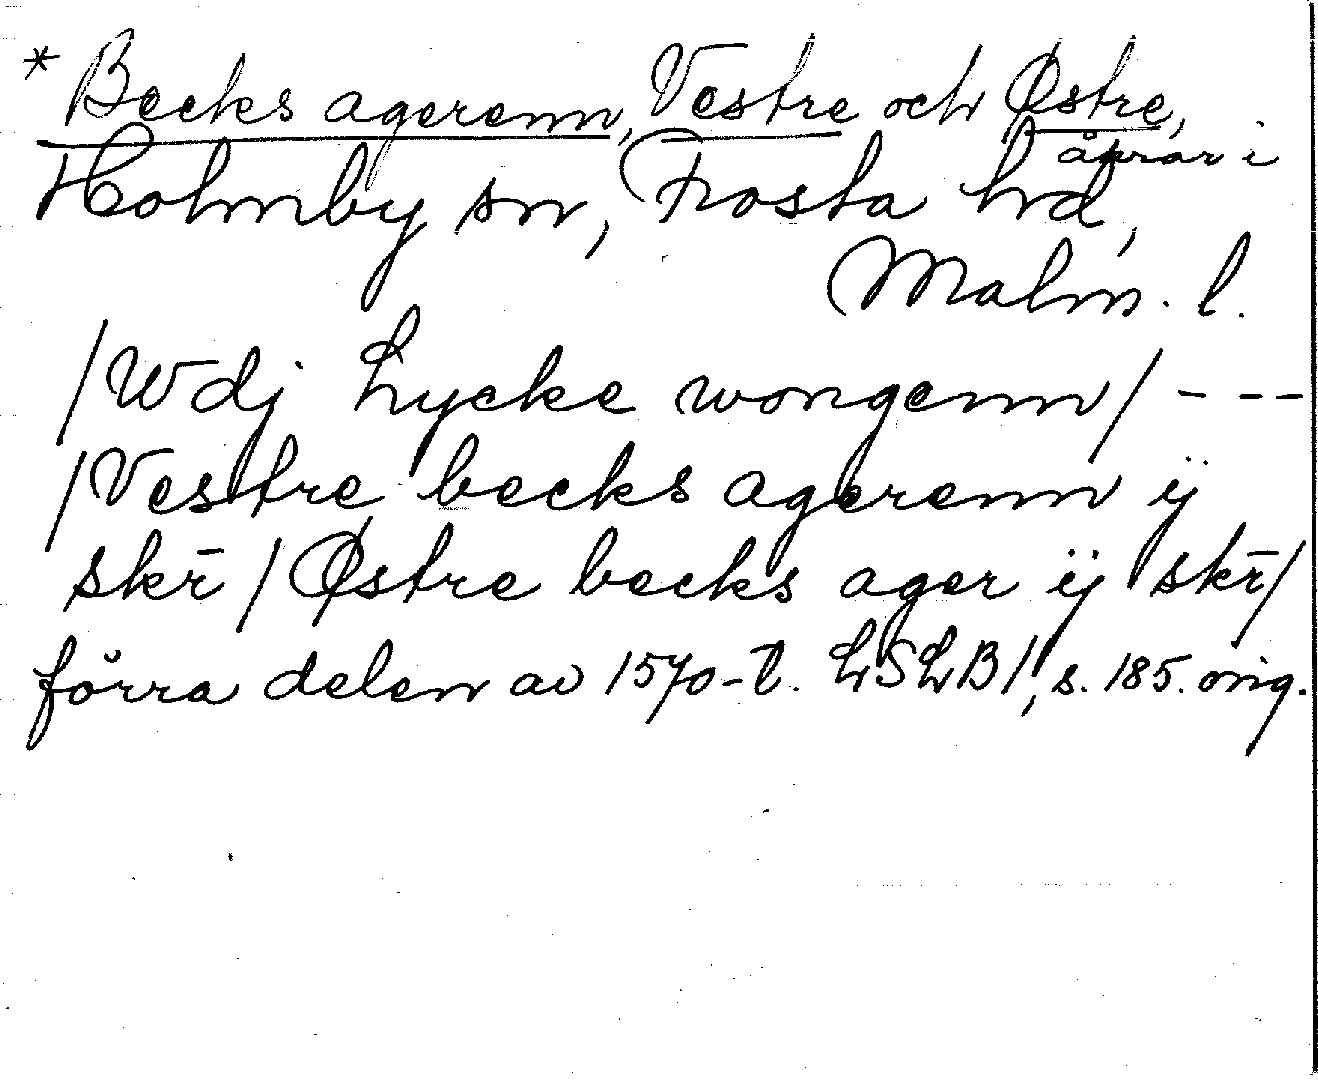 * Becks agerenn, Vestre och Østre,
åkrar i
Holmby sn, Frosta hd,
Malm. l.
/Wdj Lycke wongenn/ - - -
/Vestre becks agerenn ij
skr̄ / Østre becks ager ij skr̄/
förra delen av 1570-t. LSLB1, s. 185. orig.